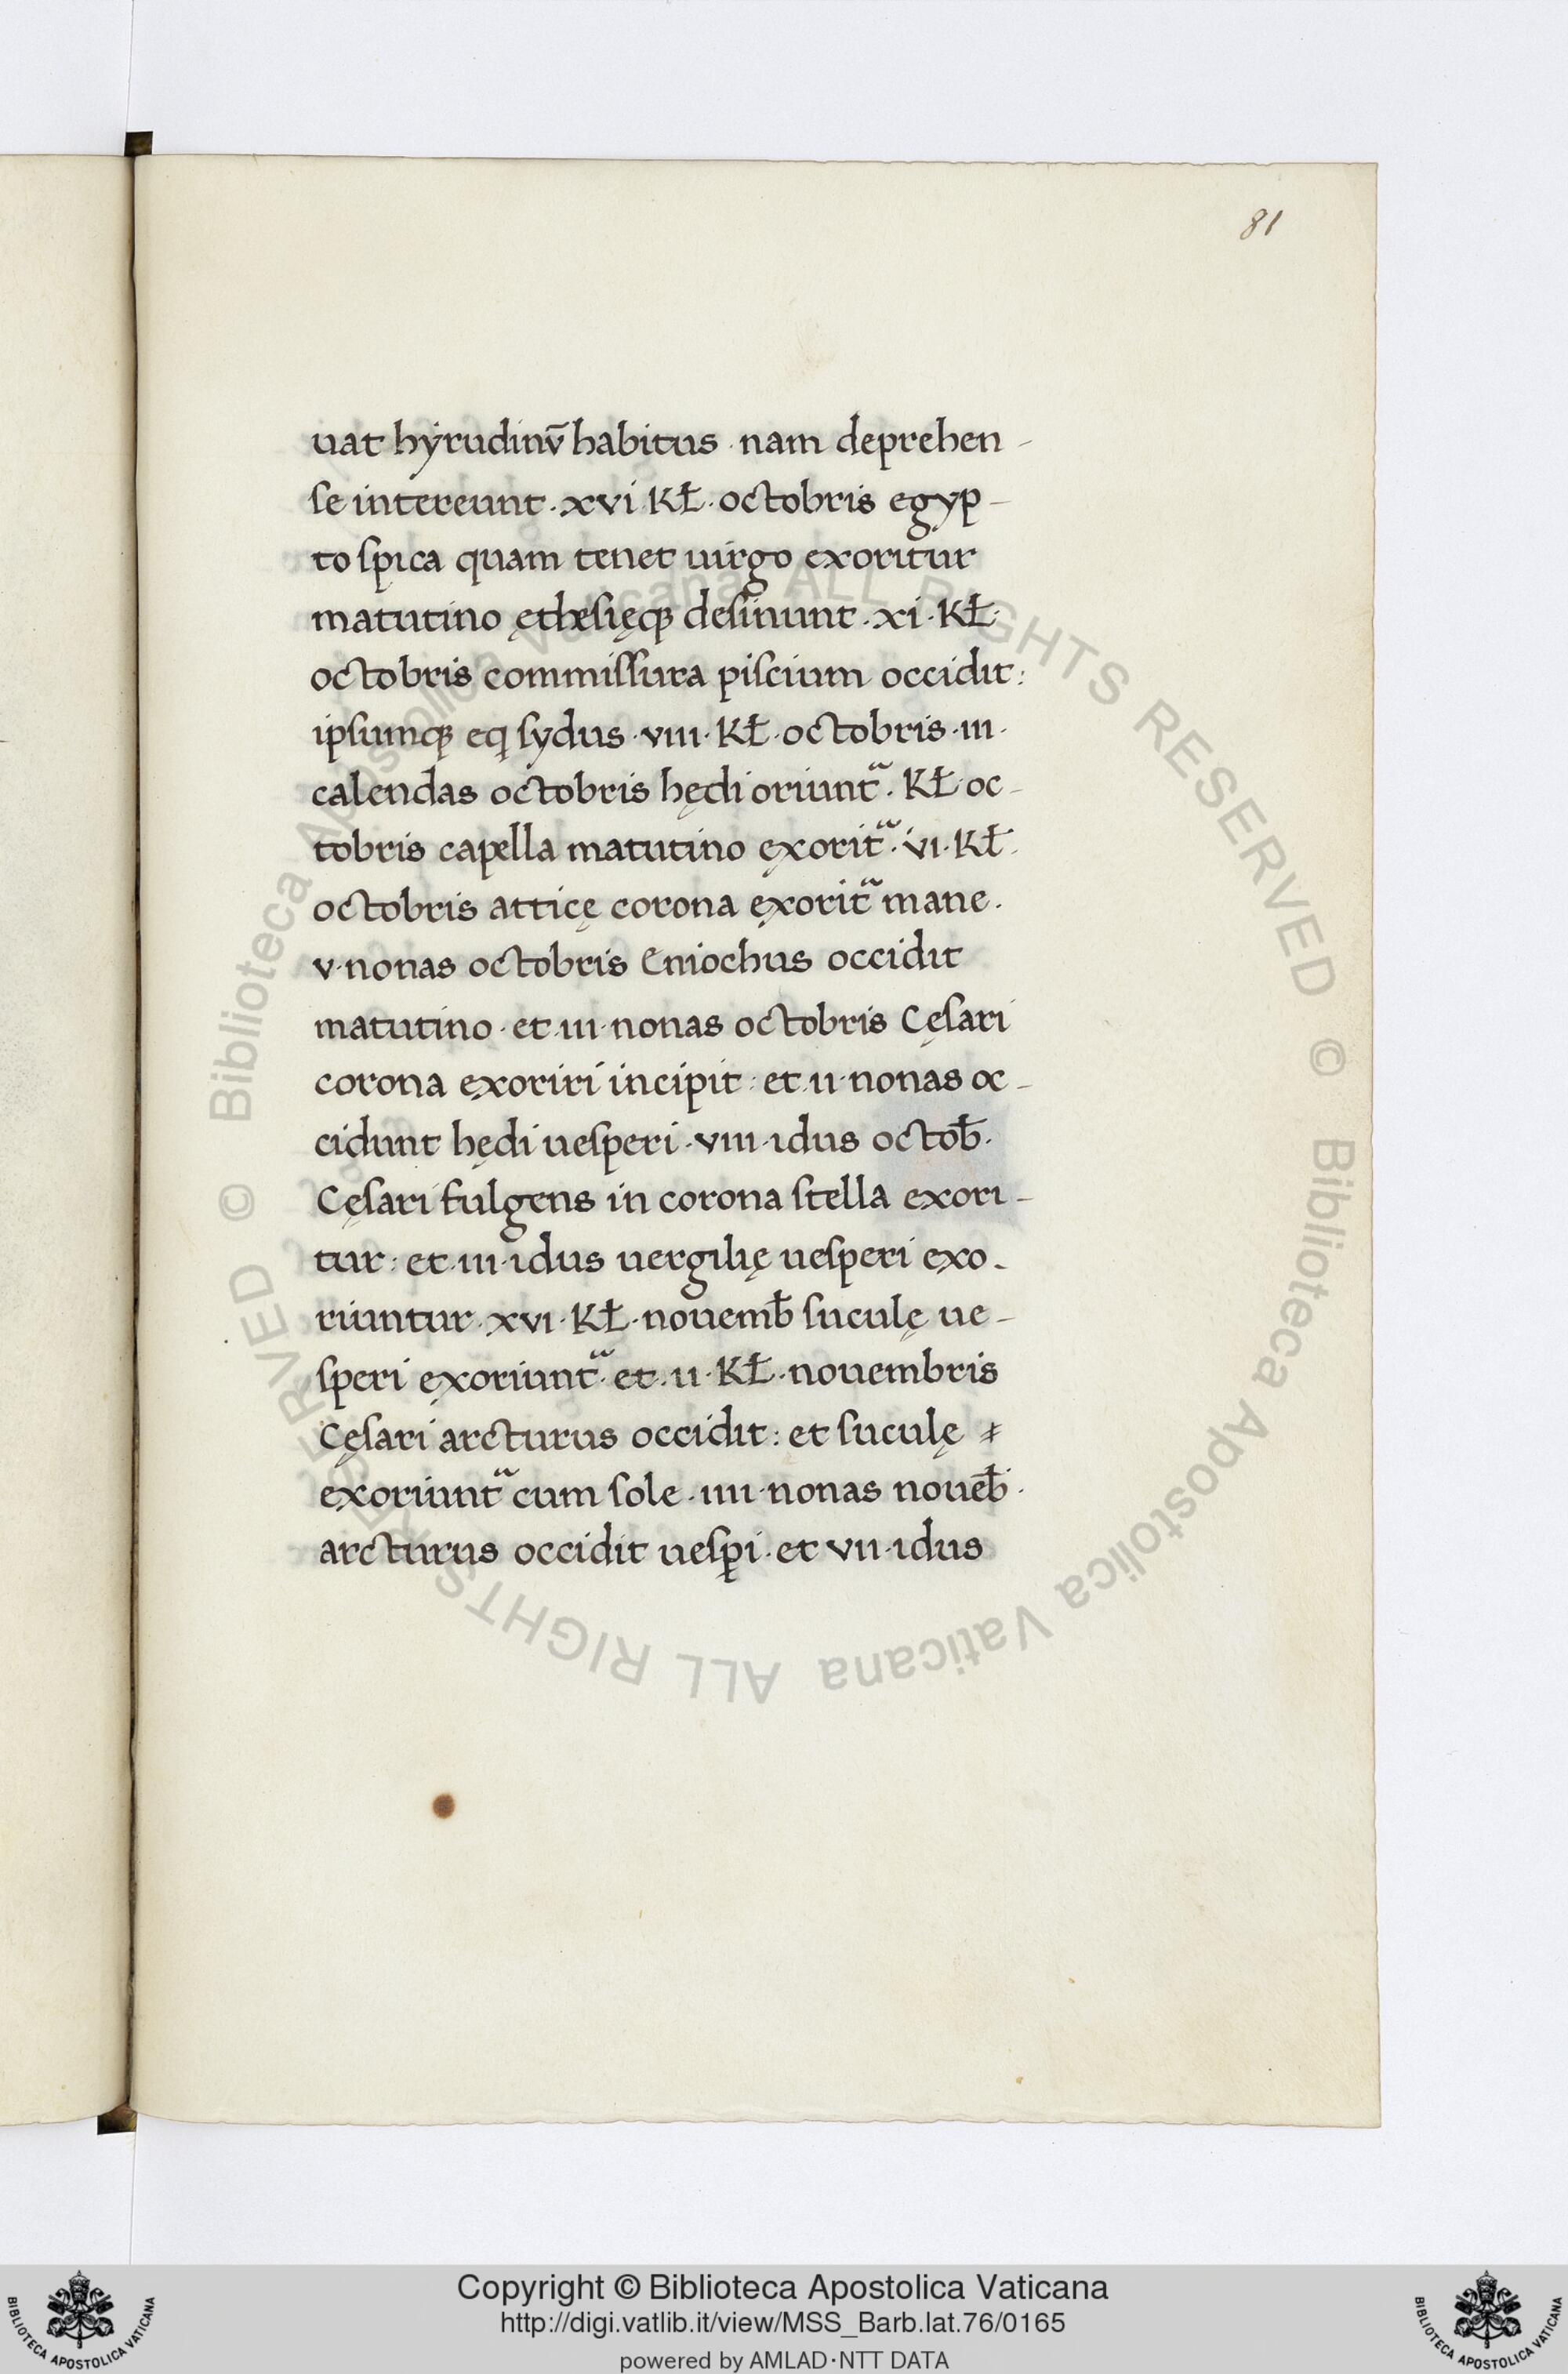 81
uat hẏrudinv̄ habitus · nam deprehen-
ſe intereunt · xvi · Kł · octobris egyp-
to ſpica quam tenet uirgo exoritur
matutino ętheſięqꝫ deſinunt · xi · Kł ·
octobris commiſſura piſcium occidit :
ipſumqꝫ eq ſydus · viii · Kł · octobris · iii ·
calendas octobris hędi oriuntᷓ · Kł · oc-
tobris capella matutino exoritᷓ · vi · Kł ·
octobris atticę corona exoritᷓ mane ·
v · nonas octobris Eniochus occidit
matutino · et · iii · nonas octobris Cęſari
corona exoriri incipit : et · ii · nonas oc-
cidunt hędi ueſperi · viii · idus octob̄ ·
Cęſari fulgens in corona ſtella exori-
tur : et · iii · idus uergilię ueſperi exo-
riuntur · xvi · Kł · nouemb̄ ſuculę ue-
ſperi exoriuntᷓ · et · ii · Kł · nouembris
Cęſari arcturus occidit : et ſuculę
exoriuntᷓ cum ſole · iiii · nonas nouēb̄ ·
arcturus occidit ueſꝑi · et vii · idus
© Biblioteca Apostolica Vaticana ALL RIGHTS RESERVED © Biblioteca Apostolica Vaticana ALL RIGHTS RESERVED
Copyright © Biblioteca Apostolica Vaticana
http://digi.vatlib.it/view/MSS_Barb.lat.76/0165
powered by AMLAD·NTT DATA
BIBLIOTECA APOSTOLICA VATICANA
BIBLIOTECA APOSTOLICA VATICANA